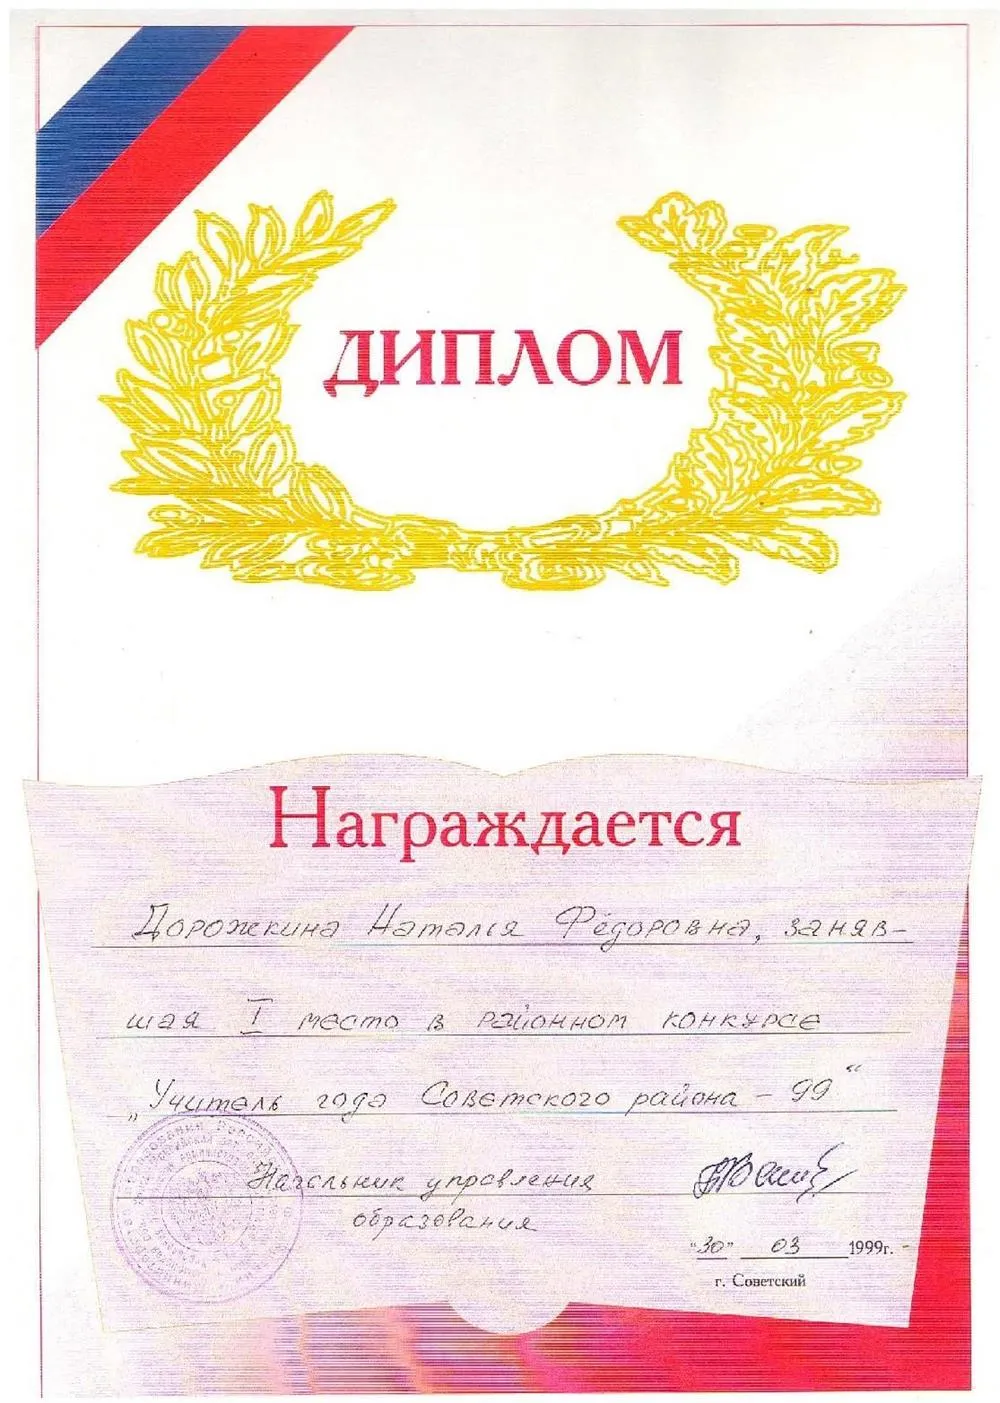 ДИПЛОМ
Награждается
Дорожкина Наталья Фёдоровна, заняв-
шая I место в районном конкурсе
„Учитель года Советского района - 99“
Начальник управления
образования
"30" 03 1999г.
г. Советский